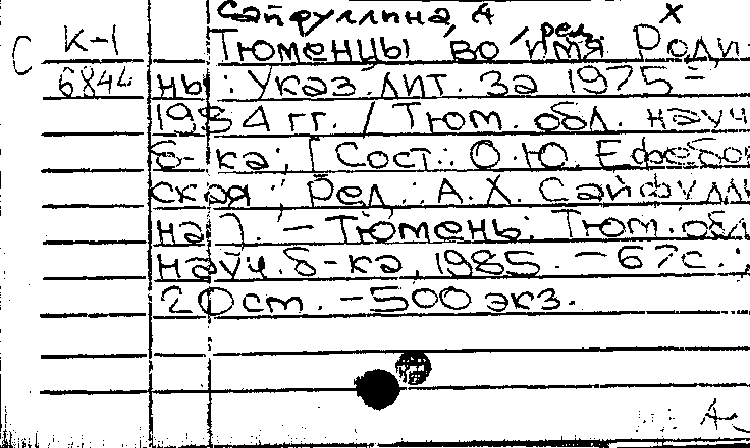 Сайфуллина, А Х
, ред.
С К-1 Тюменцы во имя Роди
6844 ны: Указ. лит. за 1975-
1984 гг. / Тюм. обл. науч
б-ка; [Сост.: О.Ю. Ефебов
ская; Ред.: А.Х. Сайфулли
на]. - Тюмень: Тюм. обл
науч. б-ка, 1985. - 67с.;
20 см. - 500 экз.